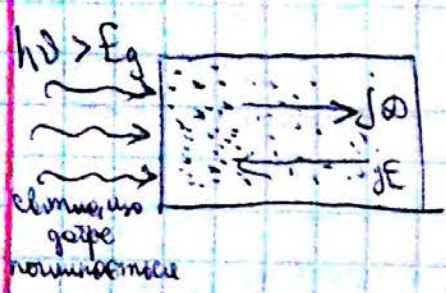 hν > Eg
jD
jE
світло, що
добре
поглинається